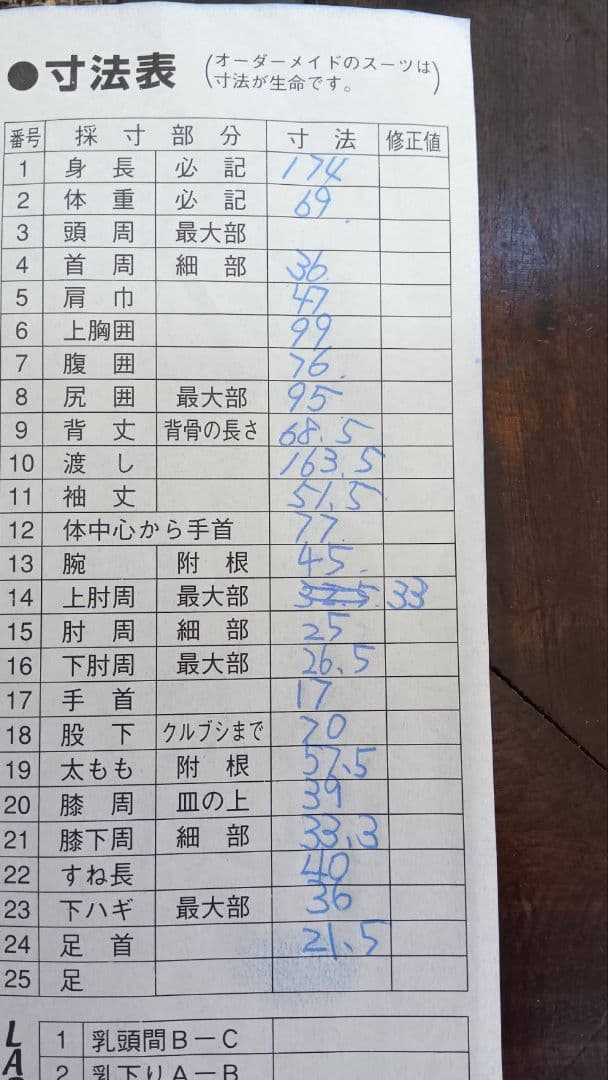 ●寸法表 (オーダーメイドのスーツは
寸法が生命です。)
番号 採寸部分 寸法 修正値
1 身長 必記 174
2 体重 必記 69.
3 頭周 最大部
4 首周 細部 36.
5 肩巾 47
6 上胸囲 99
7 腹囲 76.
8 尻囲 最大部 95
9 背丈 背骨の長さ 68.5
10 渡し 163.5
11 袖丈 51.5
12 体中心から手首 77.
13 腕 附根 45.
14 上肘周 最大部 33
15 肘周 細部 25
16 下肘周 最大部 26.5
17 手首 17
18 股下 クルブシまで 70
19 太もも 附根 57.5
20 膝周 皿の上 39
21 膝下周 細部 33.3
22 すね長 40
23 下ハギ 最大部 36
24 足首 21.5
25 足
1 乳頭間B－C
2 乳下りA－B
LA